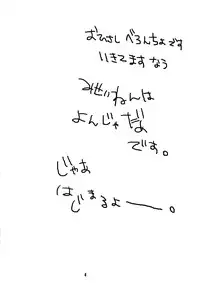 おひさし べろんちょです
いきてます なう
みせいねんは
よんじゃだめ
です。
じゃあ
はじまるよー。